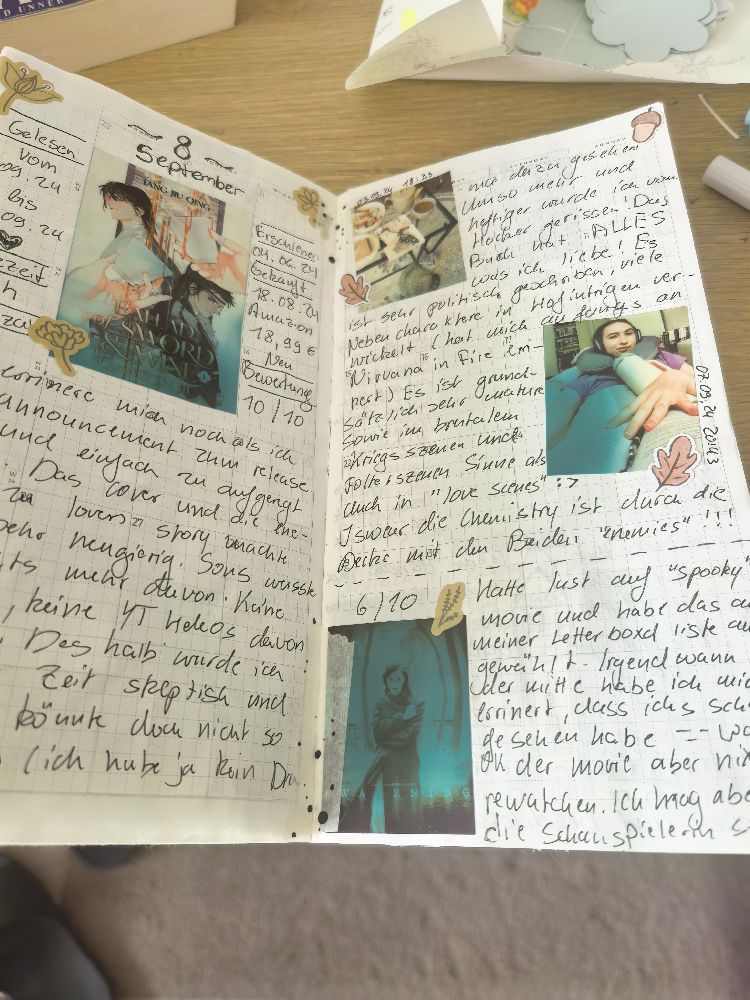 8
September
Gelesen
vom
09.24
bis
09.24
TANG JIU QING
BALLAD
SWORD
& WINE
1
Erschienen
04.06.24
Gekauft
18.08.24
Amazon
18,99 €
Neu
Bewertung
10/10
erinnere mich noch als ich
announcement zum release
und einfach zu aufgeregt
Das Cover und die ene-
zu lovers story machte
sehr neugierig. Sons wusste
mehr davon. Keine
, keine YT Videos davon
Deshalb wurde ich
Zeit skeptisch und
könnte doch nicht so
(ich habe ja kein Dra
dazu gesehen
Umso mehr und
heftiger wurde ich vom
Hocker gerissen! Das
Buch hat ALLES
was ich liebe! Es
ist sehr politisch geschrieben, viele
Neben charaktere in Hofintrigen ver-
wickelt (hat mich anfangs an
Nirvana in Fire erin-
nert) Es ist grund-
sätzlich sehr mature
sowie im brutalem
Kriegsszenen und
Folterszenen Sinne als
auch in "love scenes" :>
I swear die Chemistry ist durch die
Decke mit den Beiden "enemies" !!!
07.09.24 20:43
6/10
WA ENING
Hatte lust auf "spooky"
movie und habe das au
meiner Letterboxd liste au
gewählt. Irgendwann
der mitte habe ich mic
errinert, dass ichs sch
gesehen habe
Ok der movie aber nix
rewatchen. Ich mag abe
die Schauspielerin s